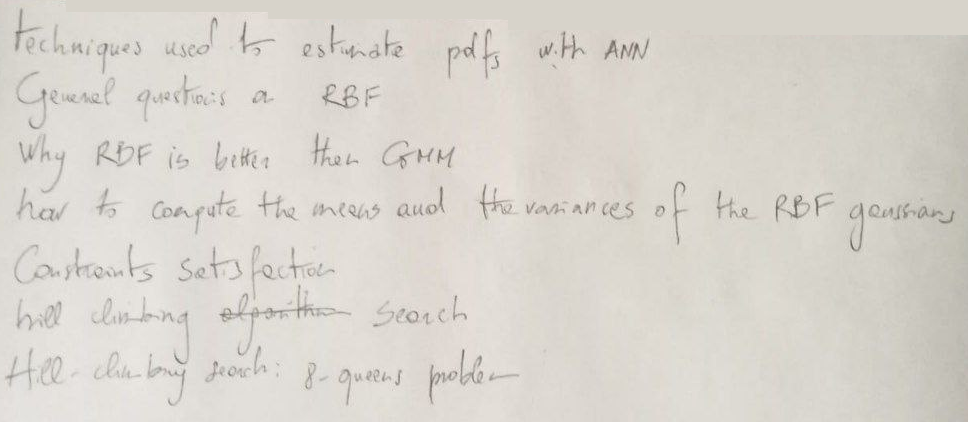 Techniques used to estimate pdfs with ANN
General questions on RBF
Why RBF is better then GMM
how to compute the means and the variances of the RBF gaussians
Constraints satisfaction
hill climbing algorithm search
Hill-climbing search: 8-queens problem